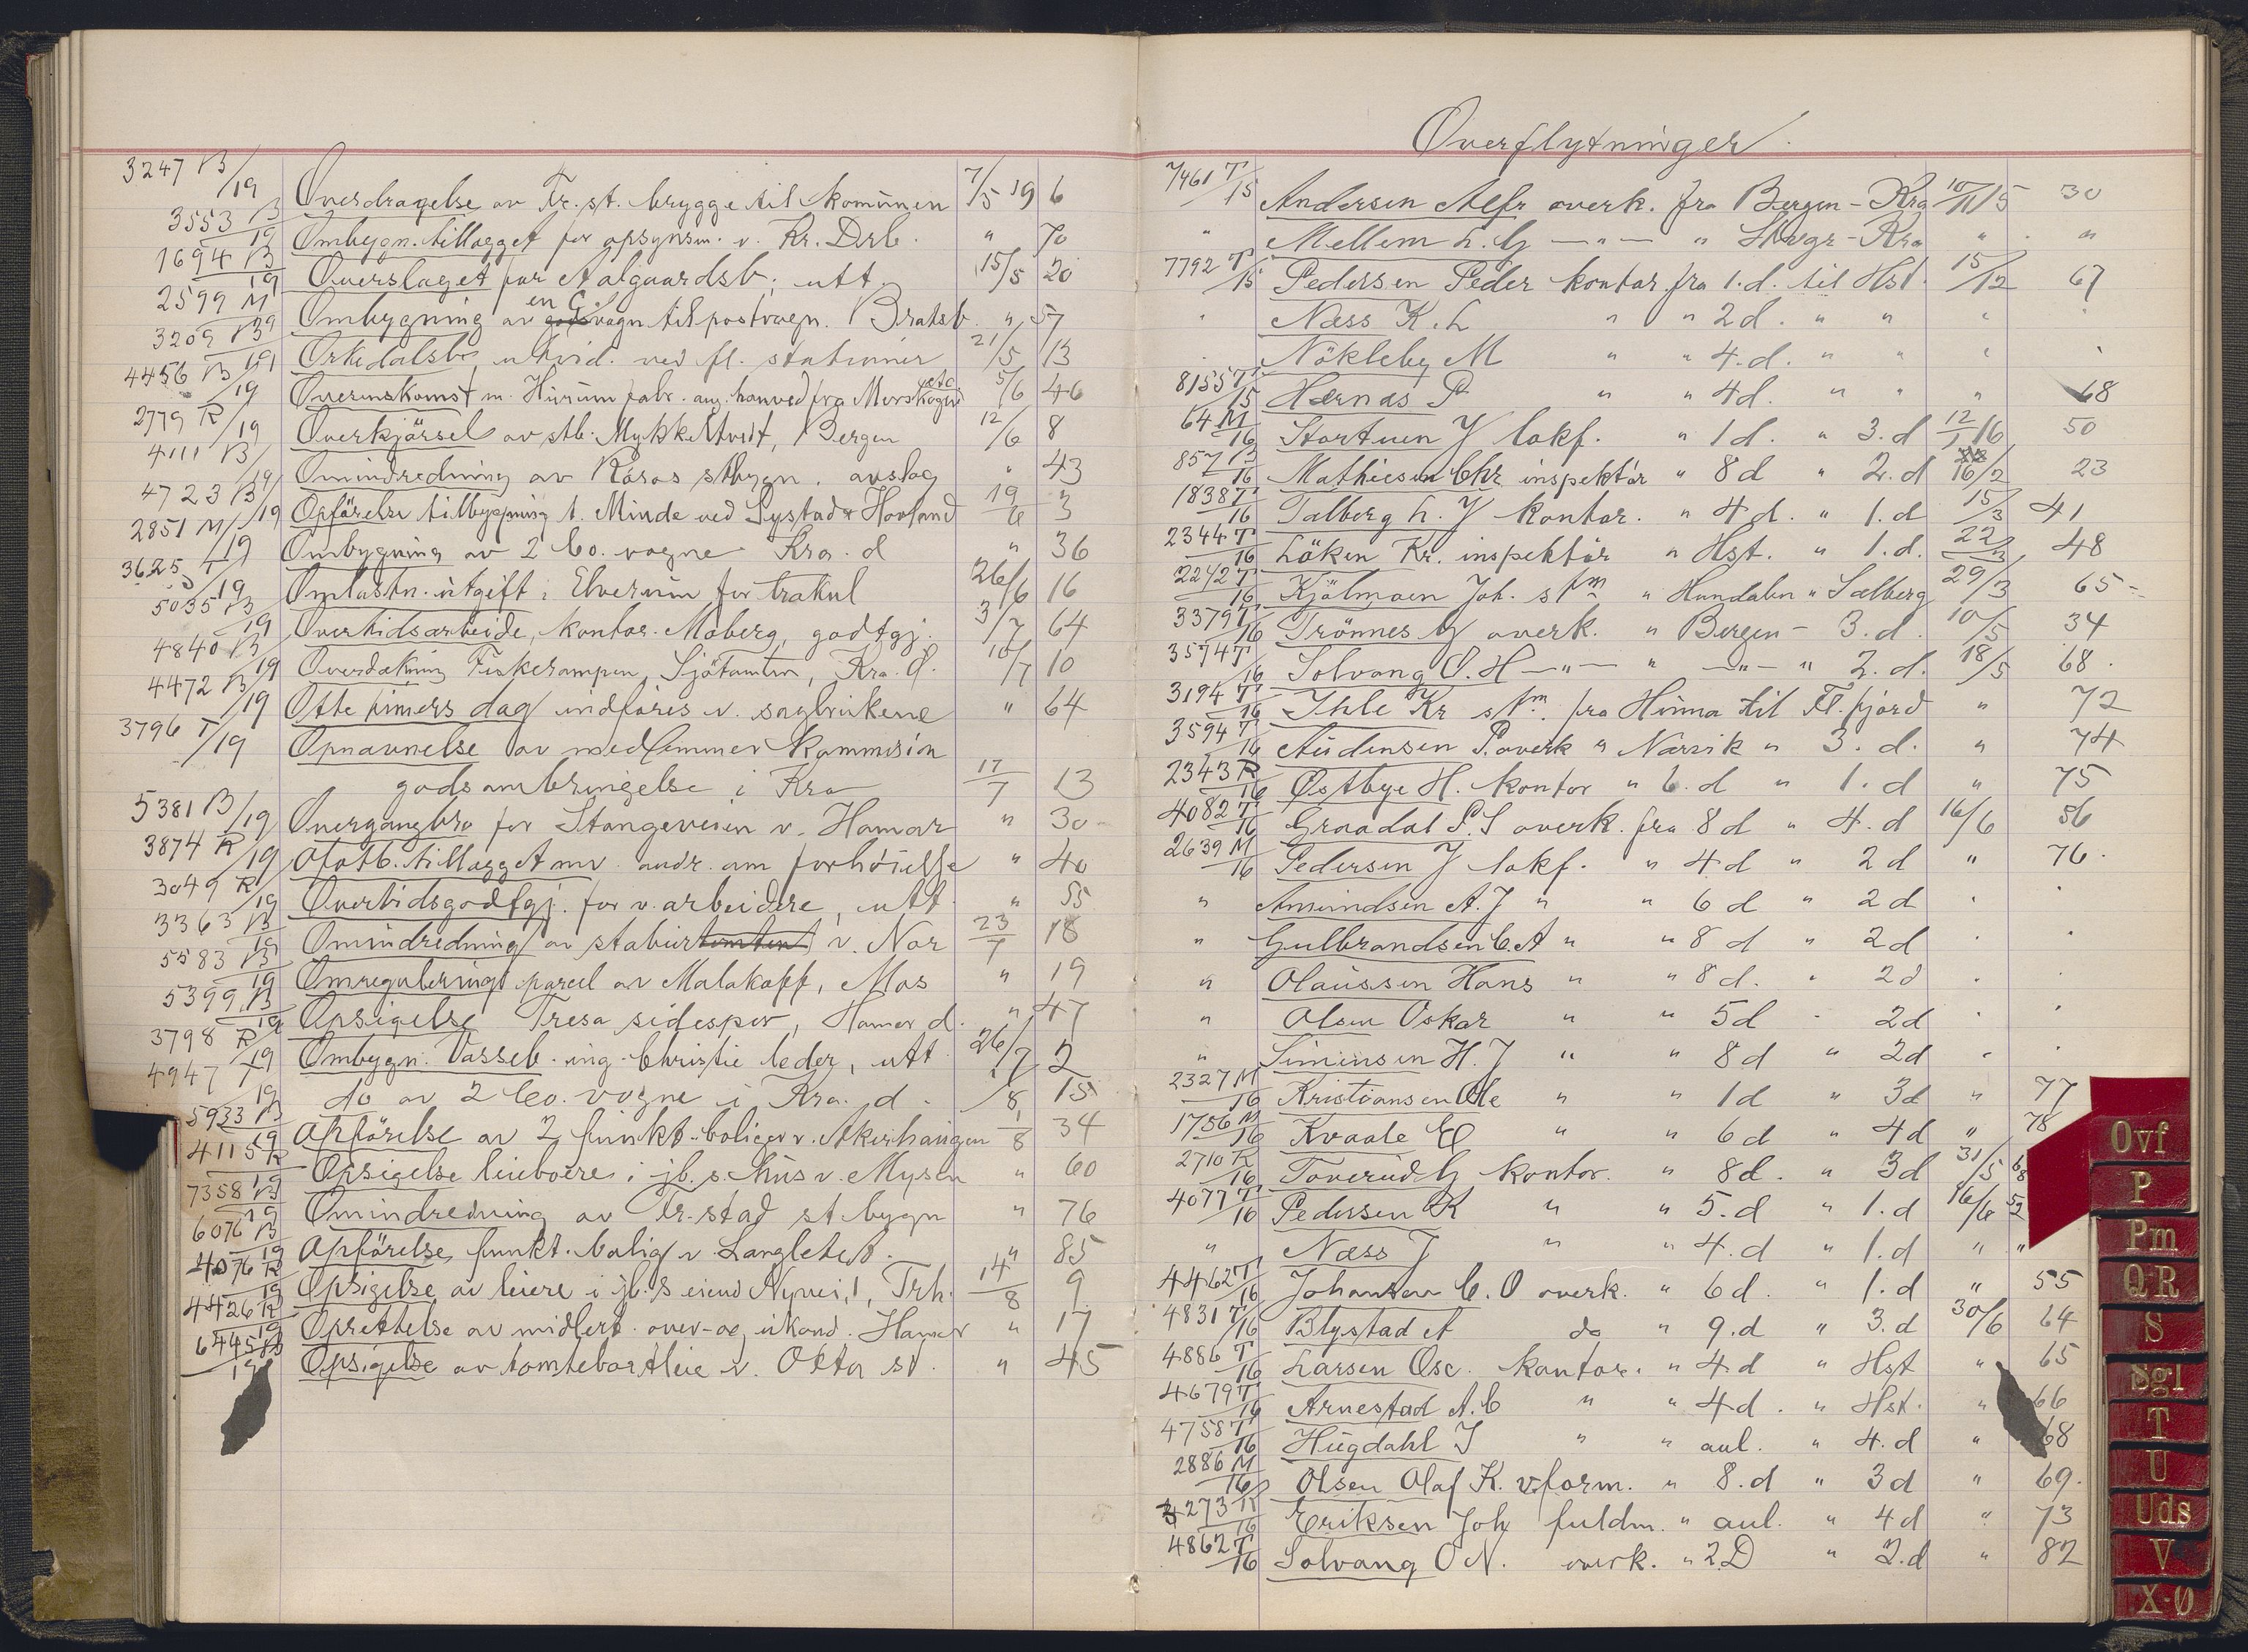 3247 B/19 Overdragelse av Fr. st. brygge til komunen 7/5 19 6
3553 B/19 Ombygn. tillægget for opsynsm. v. Kr. Drb. " 70
1694 B/19 Overslaget for Aalgaardsb. utt. 15/5 20
2599 M/19 Ombygning av en G vogn til postvogn. Bratsb. " 57
3209 B/19 Orkedalsb. utvid. ved fl. stationer 21/5 13
4456 B/19 Overenskomst m. Hurum fabr. ang. hunved fra Morskogen etc. 5/6 46
2779 R/19 Overkjørsel av stb. Mykkeltvedt, Bergen 12/6 8
4111 B/19 Omindredning av Røros stbygn. avslag " 43
4723 B/19 Opførelse tilbygning t. Minde ved Systad & Hovland 19/6 3
2851 M/19 Ombygning av 2 Co. vogne Kra. d " 36
3625 T/19 Omlastn. utgift i Elverum for trækul 26/6 16
5035 B/19 Overtidsarbeide, kontor. Moberg, godtgj. 3/7 64
4840 B/19 Overdækning Fiskerampen, Sjøtomten, Kra. Ø. 10/7 10
4472 B/19 Otte timers dag indføres v. sagbrukene " 64
3796 T/19 Opnævnelse av medlemmer kommision
godsombringelse i Kra 17/7 13
5381 B/19 Overgangbro for Stangeveien v. Hamar " 30
3874 R/19 Ofotb. tillægget mv. andr. om forhøielse " 40
3049 R/19 Overtidsgodtgj. for v. arbeidere, utt. " 55
3363 B/19 Omindredning av stabur v. Nor 23/7 18
5583 B/19 Omregulering parcel av Malakoff, Mos " 19
5399 B/19 Opsigelse Tresa sidespor, Hamar d. " 47
3798 R/19 Ombygn. Vasseb. ing. Christie leder, utt 26/7 2
4947 T/19 do av 2 Co. vogne i Kra. d. 1/8 15
5933 B/19 Opførelse av 2 funkt. boliger v. Akerhaugen 1/8 34
4115 R/19 Opsigelse leieboere i jb. s. hus v. Mysen " 60
7358 B/19 Omindredning av Fr.stad st bygn " 76
6076 B/19 Opførelse funkt. bolig v Langlete st. " 85
4076 R/19 Opsigelse av leiere i jb. s eiend Nyvei, 1, Trh. 14/8 9
4426 R/19 Oprettelse av midlert. over- og iskond. Hamar " 17
6445 B/19 Opsigelse av tomtebortleie v. Otta st. " 45
Overflytninger.
7461 T/15 Andersen Alfr overk. fra Bergen - Kra 10/11 15 30
" Mellem L. G —"— " Stvgr - Kra " "
7792 T/15 Pedersen Peder kontor. fra 1. d. til Hst. 15/12 67
" Næss K. L " " 2 d. " " " "
" Nökleby M " " 4. d. " " " "
8155 T/15 Hernæs P " " 4 d. " " " 68
64 M/16 Stortuen J lokf. " 1 d. " 3. d 12/1 16 50
857 B/16 Mathiesen Chr inspektör " 8 d " 2. d 16/2 23
1838 T/16 Talberg L. J kontor. " 4 d. " 1. d 15/3 41
2344 T/16 Löken Kr. inspektör " Hst. " 1. d. 22/3 48
2242 T/16 Kjölmoen Joh. stm " Hundalen " Sælberg 29/3 65
3379 T/16 Trönnes G overk. " Bergen - 3. d. 10/5 34
3574 T/16 Solvang O. H —"— " —"— " 2. d. 18/5 68.
3194 T/16 Ihle Kr stm. fra Hinna til Fl. fjord " 72
3594 T/16 Audensen P. overk " Narvik " 3. d. " 74
2343 R/16 Østbye H. kontor " 6. d " 1. d " 75
4082 T/16 Graadal P. S overk. fra 8 d " 4. d 16/6 56
2639 M/16 Pedersen J lokf. " 4 d " 2 d " 76.
" Amundsen A. J " " 6 d " 2 d " "
" Gulbrandsen C. A " " 8 d " 2 d " "
" Olaussen Hans " " 8 d. " 2 d " "
" Olsen Oskar " " 5 d " 2 d " "
" Simensen H. J " " 8 d " 2 d " "
2327 M/16 Kristiansen Ole " " 1 d " 3 d " 77
1756 M/16 Kvaale E " " 6 d " 4 d " 78
2710 R/16 Toverud G kontor. " 8 d. " 3 d 31/5 68
4077 T/16 Pedersen K " " 5. d " 1. d 16/6 52
" Næss J " " 4. d " 1. d " "
4462 T/16 Johansen C. O overk. " 6 d. " 1. d " 55
4831 T/16 Blystad A do " 9. d " 3. d 30/6 64
4886 T/16 Larsen Osc. kontor. " 4. d " Hst " 65
4679 T/16 Arnestad A. C " " 4 d. " Hst. " 66
4758 T/16 Hugdahl J " " anl. " 4. d " 68
2886 M/16 Olsen Olaf K. v.form. " 8. d " 3 d " 69.
4273 R/16 Eriksen Joh fuldm. " anl. " 4 d " 73
4862 T/16 Solvang O N. overk. " 2 D " 3. d " 82
Ovf
P
Pm
Q-R
S
Sgl
T
U
Uds
V
X-Ø